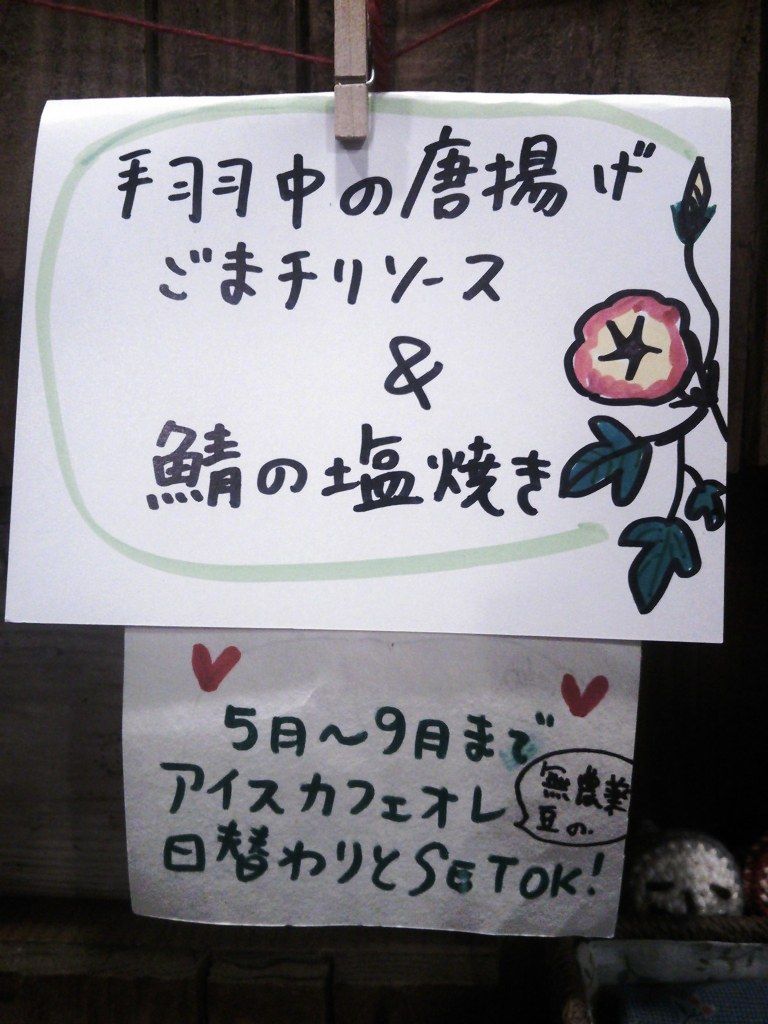 手羽中の唐揚げ
ごまチリソース
&
鯖の塩焼き
5月〜9月まで
アイスカフェオレ
無農薬
豆の
日替わりとSETOK!